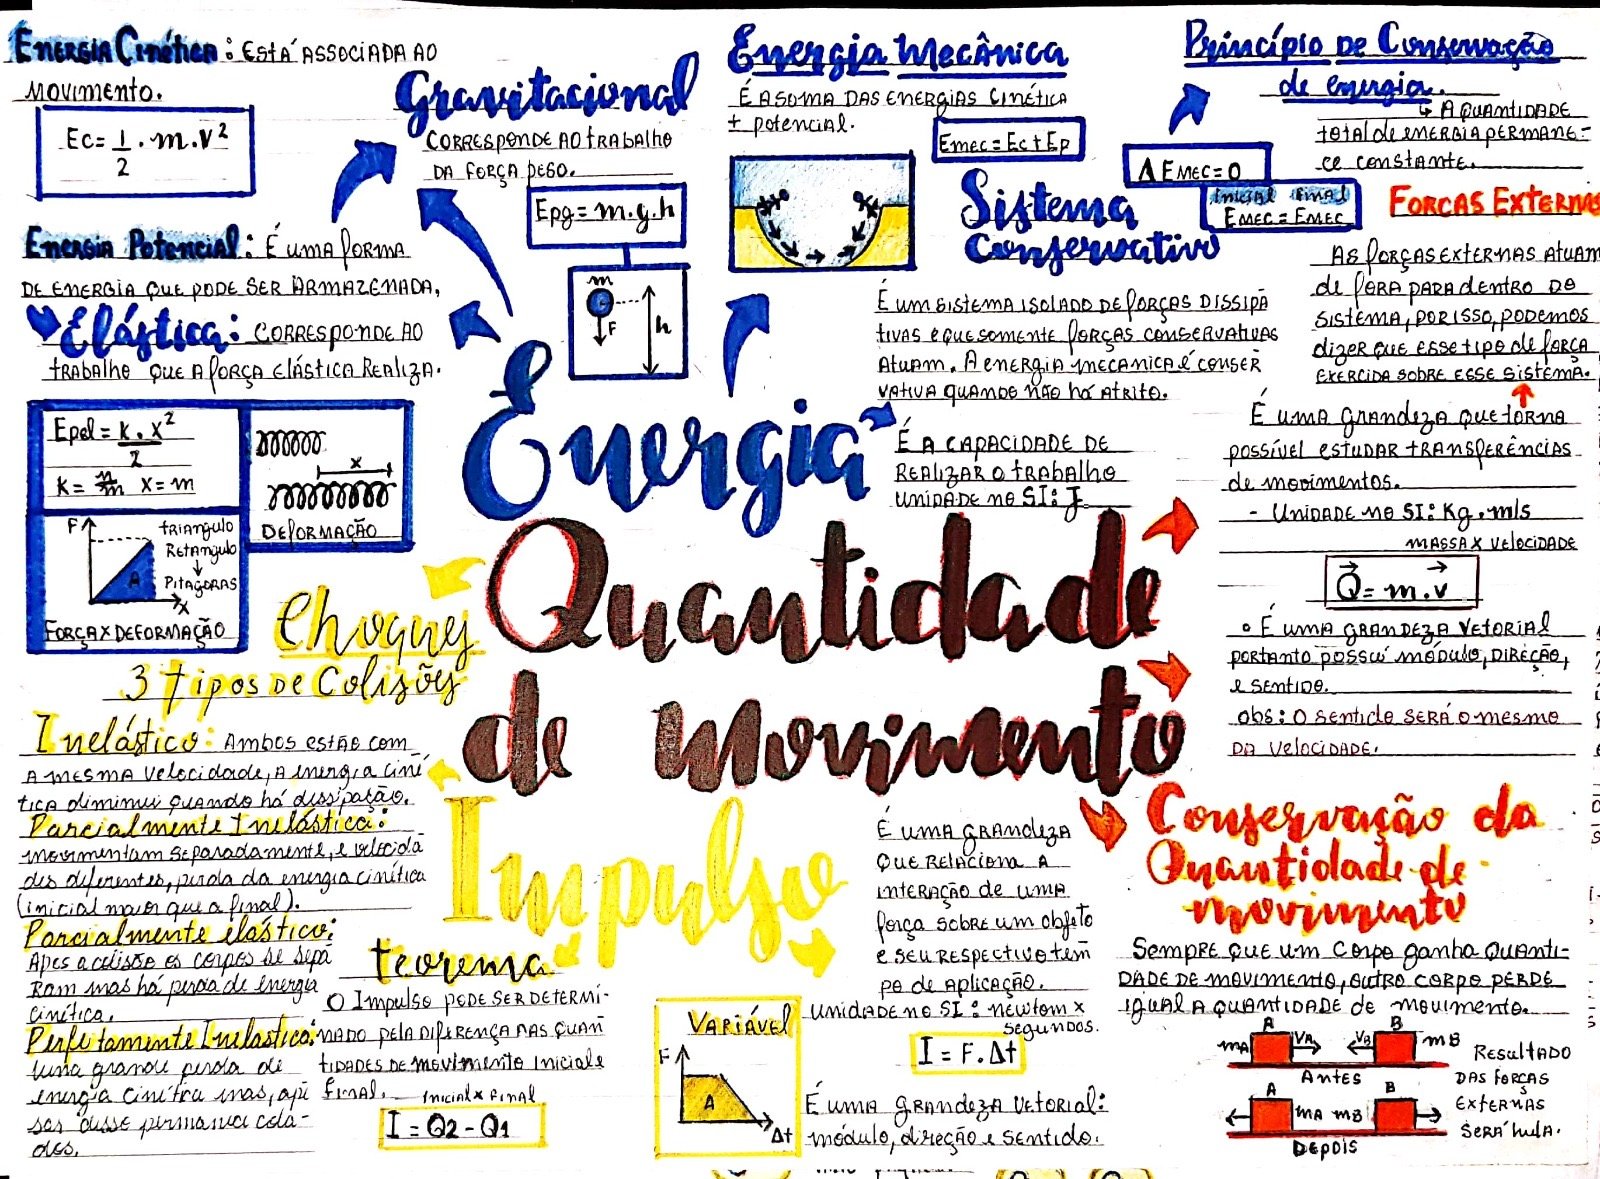 Energia Cinética: Está associada ao
movimento.
Ec = 1/2 . m . v²
Gravitacional
Corresponde ao trabalho
da força peso.
Epg = m.g.h
m
F
h
Energia Mecânica
É a soma das energias cinética
+ potencial.
Emec = Ec + Ep
Princípio de Conservação
de energia.
↳ A quantidade
total de energia permane-
ce constante.
Δ Emec = 0
Inicial Final
Emec = Emec
Sistema
Conservativo
É um sistema isolado de forças dissipa
tivas e que somente forças conservativas
atuam. A energia mecanica é conser
vativa quando não há atrito.
Forças Externas
As forças externas atuam
de fora para dentro do
sistema, por isso, podemos
dizer que esse tipo de força
exercida sobre esse sistema.
Energia Potencial: É uma forma
de energia que pode ser armazenada,
Elástica: corresponde ao
trabalho que a força elástica realiza.
Epel = k . x²/2
K = N/m X = m
x
Deformação
F
triangulo
Retangulo
↓
Pitagoras
A
x
Força x Deformação
Energia
É a capacidade de
realizar o trabalho
unidade no SI: J
Quantidade
de movimento
É uma grandeza que torna
possível estudar transferências
de movimentos.
- Unidade no SI: Kg.m/s
massa x velocidade
Q = m.v
• É uma grandeza vetorial
portanto possui módulo, direção,
e sentido.
obs: o sentido será o mesmo
da velocidade.
Choques
3 tipos de Colisões
Inelástico: Ambos estão com
a mesma velocidade, a energia ciné
tica diminui quando há dissipação.
Parcialmente Inelástica:
movimentam separadamente, e velocida
des diferentes, perda da energia cinética
(inicial maior que a final).
Parcialmente elástico:
Apos a colisão os corpos se sepa
ram mas há perda de energia
cinética.
Perfeitamente Inelástico:
Uma grande perda de
energia cinética mas, apé
sar disse permanece cola-
dos.
Impulso
teorema
O Impulso pode ser determi-
nado pela diferença nas quan
tidades de movimento inicial e
final.
inicial x final
I = Q2 - Q1
Variável
F
A
Δt
É uma grandeza
que relaciona a
interação de uma
força sobre um objeto
e seu respectivo tem
po de aplicação.
unidade no SI: newtom x
segundos.
I = F.Δt
É uma grandeza vetorial:
módulo, direção e sentido.
Conservação da
Quantidade de
movimento
Sempre que um corpo ganha quanti-
dade de movimento, outro corpo perde
igual a quantidade de movimento.
mA A VA VB B mB
Antes
A mA mB B
Depois
Resultado
das forças
externas
será nula.